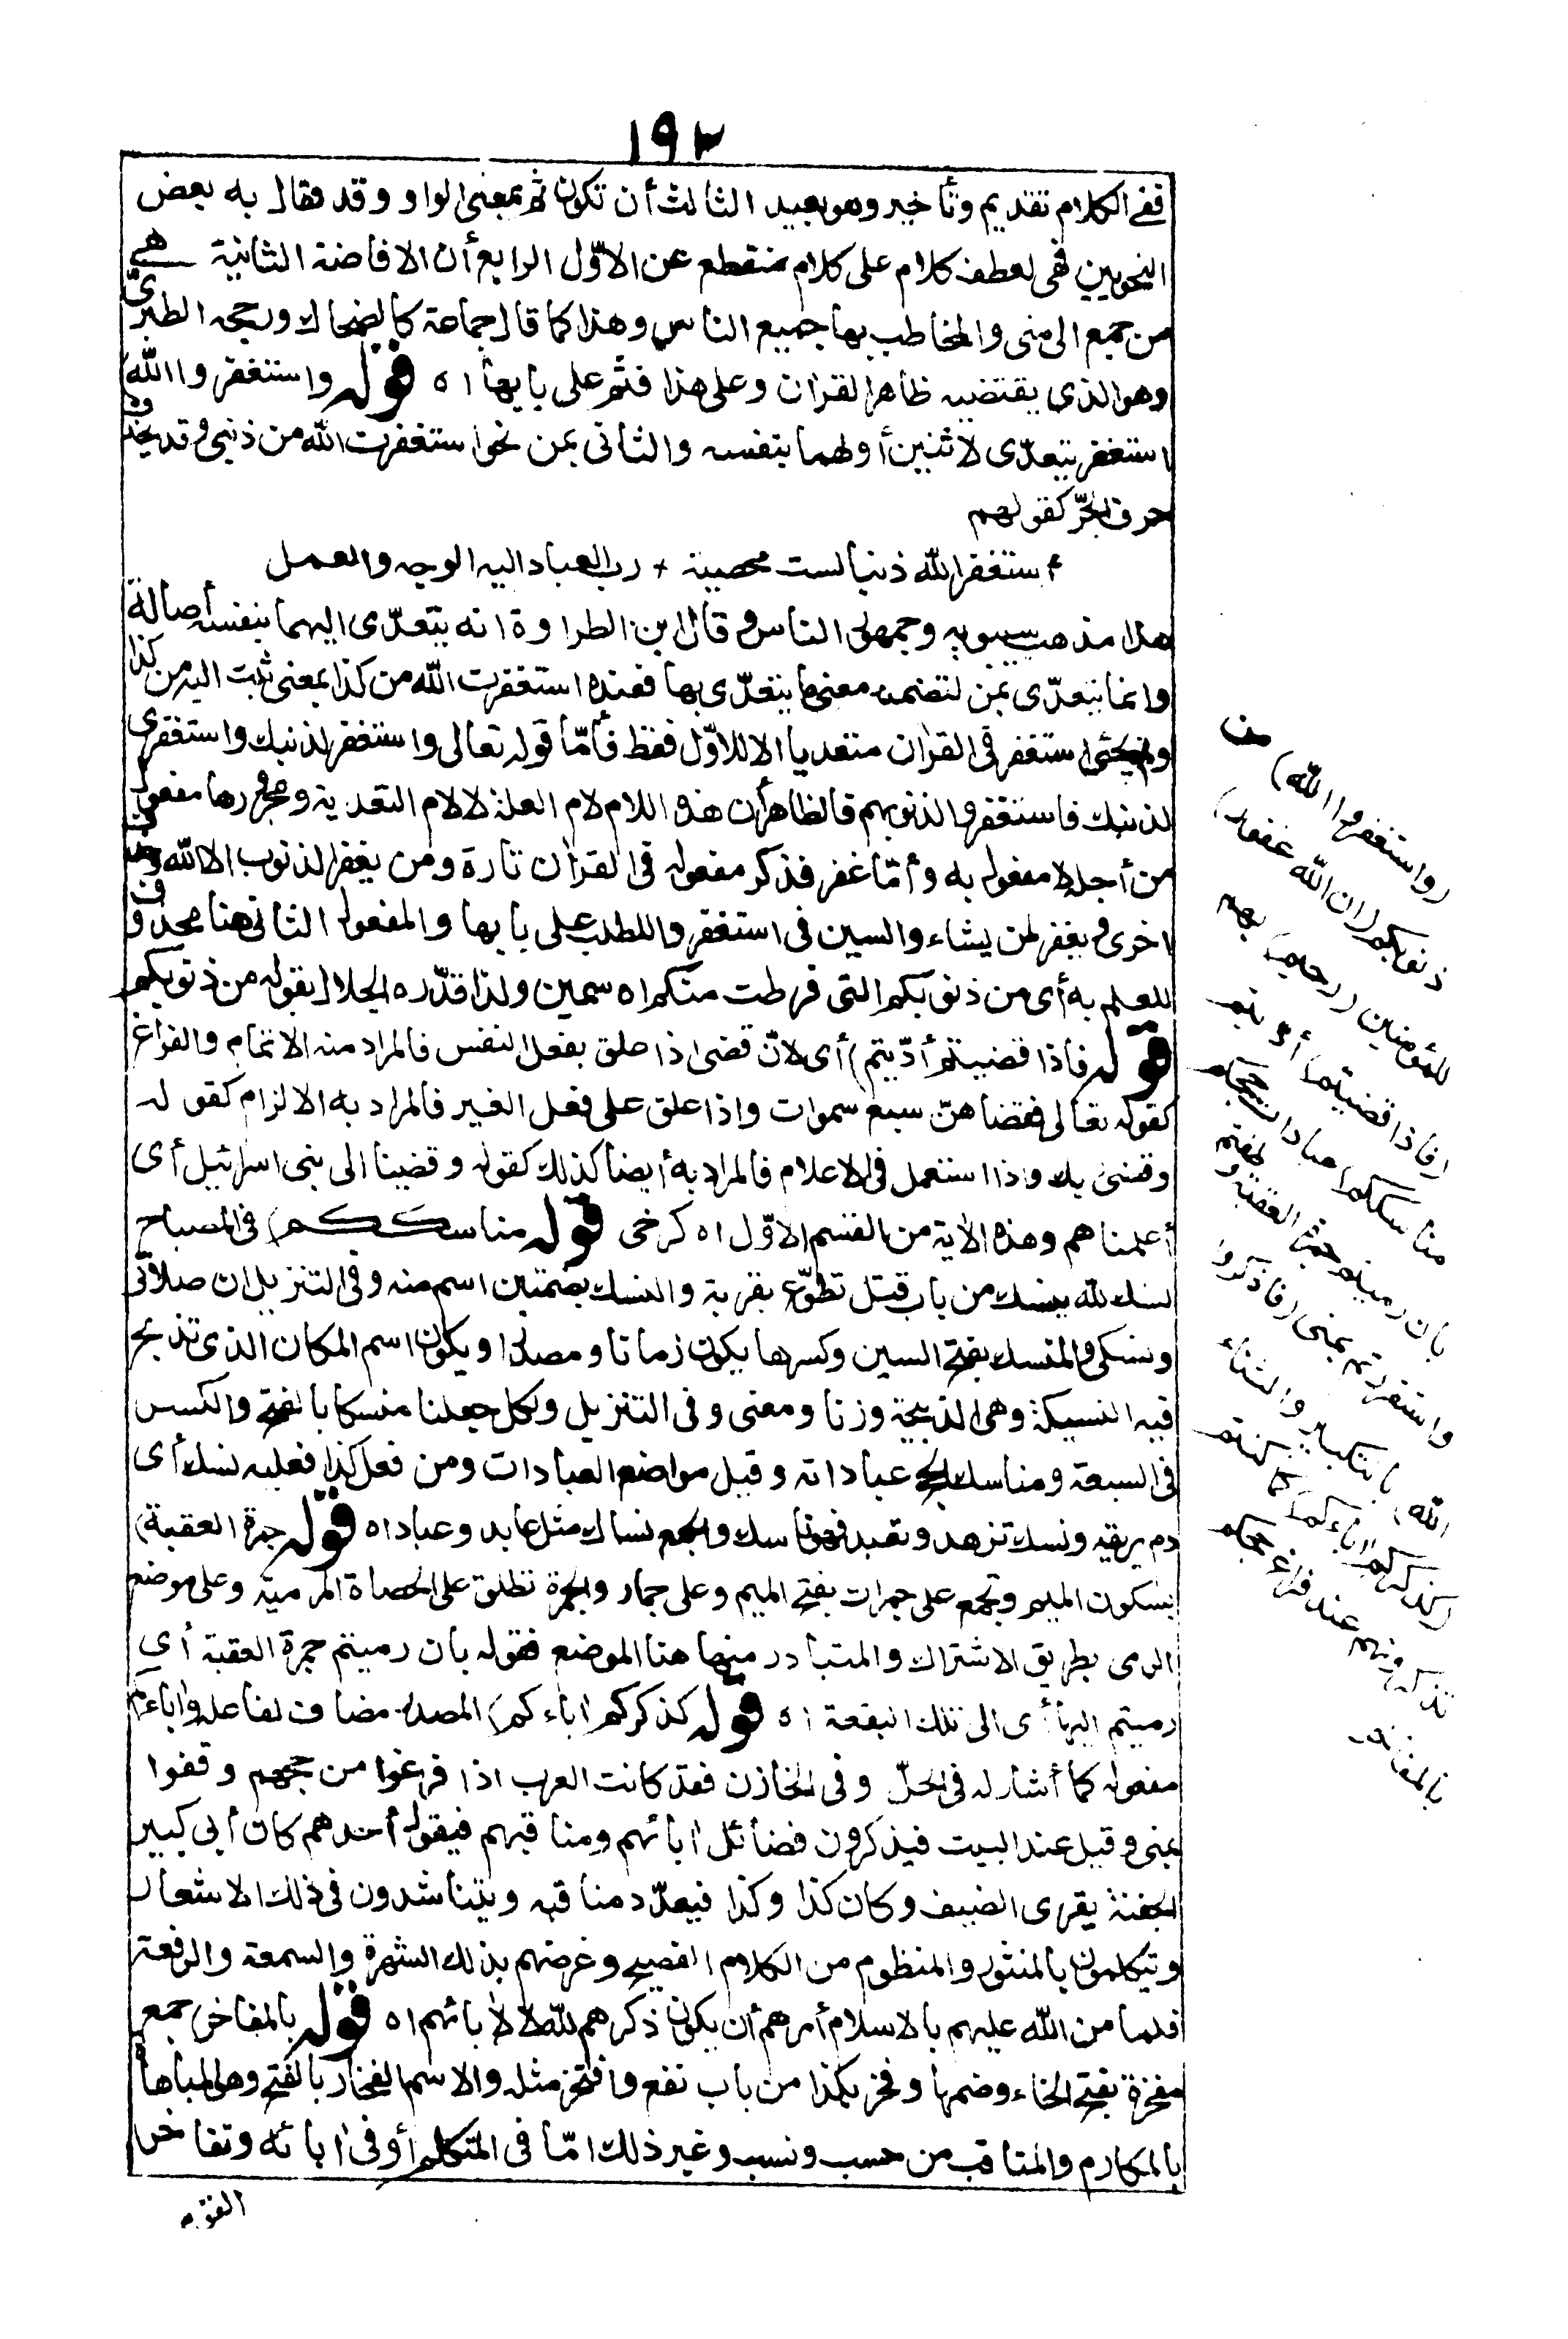 ١٩٢
ففي الكلام تقديم وتأخير وهو بعيد الثالث أن تكون ثم بمعنى الواو وقد قال به بعض
النحويين فهي لعطف كلام على كلام منقطع عن الاوّل الرابع أن الافاضة الثانية هي
من جمع الى منى والمخاطب بها جميع الناس وهذا كما قال جماعة كالضحاك ورجحه الطبرىّ
وهو الذى يقتضيه ظاهر القران وعلى هذا فثم على بابها اه قوله واستغفروا الله)
استغفر يتعدّى لاثنين أولهما بنفسه والثانى بمن نحو استغفرت الله من ذنبى وقد يحذف
حرف الجرّ كقولهم
أستغفر الله ذنبا لست محصيه + رب العباد اليه الوجه والعمل
هذا مذهب سيبويه وجمهور الناس وقال ابن الطراوة انه يتعدّى اليهما بنفسه أصالة
وانما يتعدّى بمن لتضمنه معنى ما يتعدّى بها فعنده استغفرت الله من كذا بمعنى تبت اليه من كذا
ولم يجئ استغفر فى القران متعديا الا للاوّل فقط فأمّا قوله تعالى واستغفر لذنبك واستغفرى
لذنبك فاستغفروا لذنوبهم فالظاهر أن هذه اللام لام العلة لا لام التعدية ومجرورها مفعول
من أجله لا مفعول به وأمّا غفر فذكر مفعوله فى القران تارة ومن يغفر الذنوب الا الله وحذف
اخرى ويغفر لمن يشاء والسين فى استغفروا للطلب على بابها والمفعول الثانى هنا محذوف
للعلم به أى من ذنوبكم التى فرطت منكم اه سمين ولذا قدّره الجلال بقوله من ذنوبكم
قوله فاذا قضيتم أدّيتم) أى لانّ قضى اذا علق بفعل النفس فالمراد منه الاتمام والفراغ
كقوله تعالى فقضاهنّ سبع سموات واذا علق على فعل الغير فالمراد به الالزام كقوله
وقضى ربك واذا استعمل فى الاعلام فالمراد به أيضا كذلك كقوله وقضينا الى بنى اسرائيل أى
أعلمناهم وهذه الاية من القسم الاوّل اه كرخى قوله مناسككم) فى المصباح
نسك لله ينسك من باب قتل تطوّع بقربة والنسك بضمتين اسم منه وفى التنزيل ان صلاتى
ونسكى والمنسك بفتح السين وكسرها يكون زمانا ومصدرا ويكون اسم المكان الذى تذبح
فيه النسيكة وهى الذبيحة وزنا ومعنى وفى التنزيل ولكل جعلنا منسكا بالفتح والكسر
فى السبعة ومناسك الحج عباداته وقيل مواضع العبادات ومن فعل كذا فعليه نسك أى
دم يريقه ونسك تزهد وتعبد فهو ناسك والجمع نساك مثل عابد وعباد اه قوله جمرة العقبة)
بسكون الميم وتجمع على جمرات بفتح الميم وعلى جمار والجمرة تطلق على الحصاة المرمية وعلى موضع
الرمى بطريق الاشتراك والمتبادر منها هنا الموضع فقوله بان رميتم جمرة العقبة أى
رميتم اليها أى الى تلك البقعة اه قوله كذكركم اباءكم) المصدر مضاف لفاعله واباءكم
مفعوله كما أشار له فى الحلّ وفى الخازن فقد كانت العرب اذا فرغوا من حجهم وقفوا
بمنى وقيل عند البيت فيذكرون فضائل ابائهم ومناقبهم فيقول أحدهم كان أبى كبير
الجفنة يقرى الضيف وكان كذا وكذا فيعدّد مناقبه ويتناشدون فى ذلك الاشعار
ويتكلمون بالمنثور والمنظوم من الكلام الفصيح وغرضهم بذلك الشهرة والسمعة والرفعة
فلما من الله عليهم بالاسلام أمرهم أن يكون ذكرهم لله لا لابائهم اه قوله بالمفاخر) جمع
مفخرة بفتح الخاء وضمها وفخر بكذا من باب نفع وافتخر مثله والاسم الفخار بالفتح وهى المباهاة
بالمكارم والمناقب من حسب ونسب وغير ذلك امّا فى المتكلم أو فى ابائه وتفاخر
القوم
(واستغفروا الله) من
ذنوبكم (ان الله غفور)
للمؤمنين (رحيم) بهم
(فاذا قضيتم) أديتم
مناسككم) عبادات حجكم
بان رميتم جمرة العقبة وطفتم
واستقررتم بمنى (فاذكروا
الله) بالتكبير والثناء
(كذكركم اباءكم) كما كنتم
تذكرونهم عند فراغ حجكم
بالمفاخر